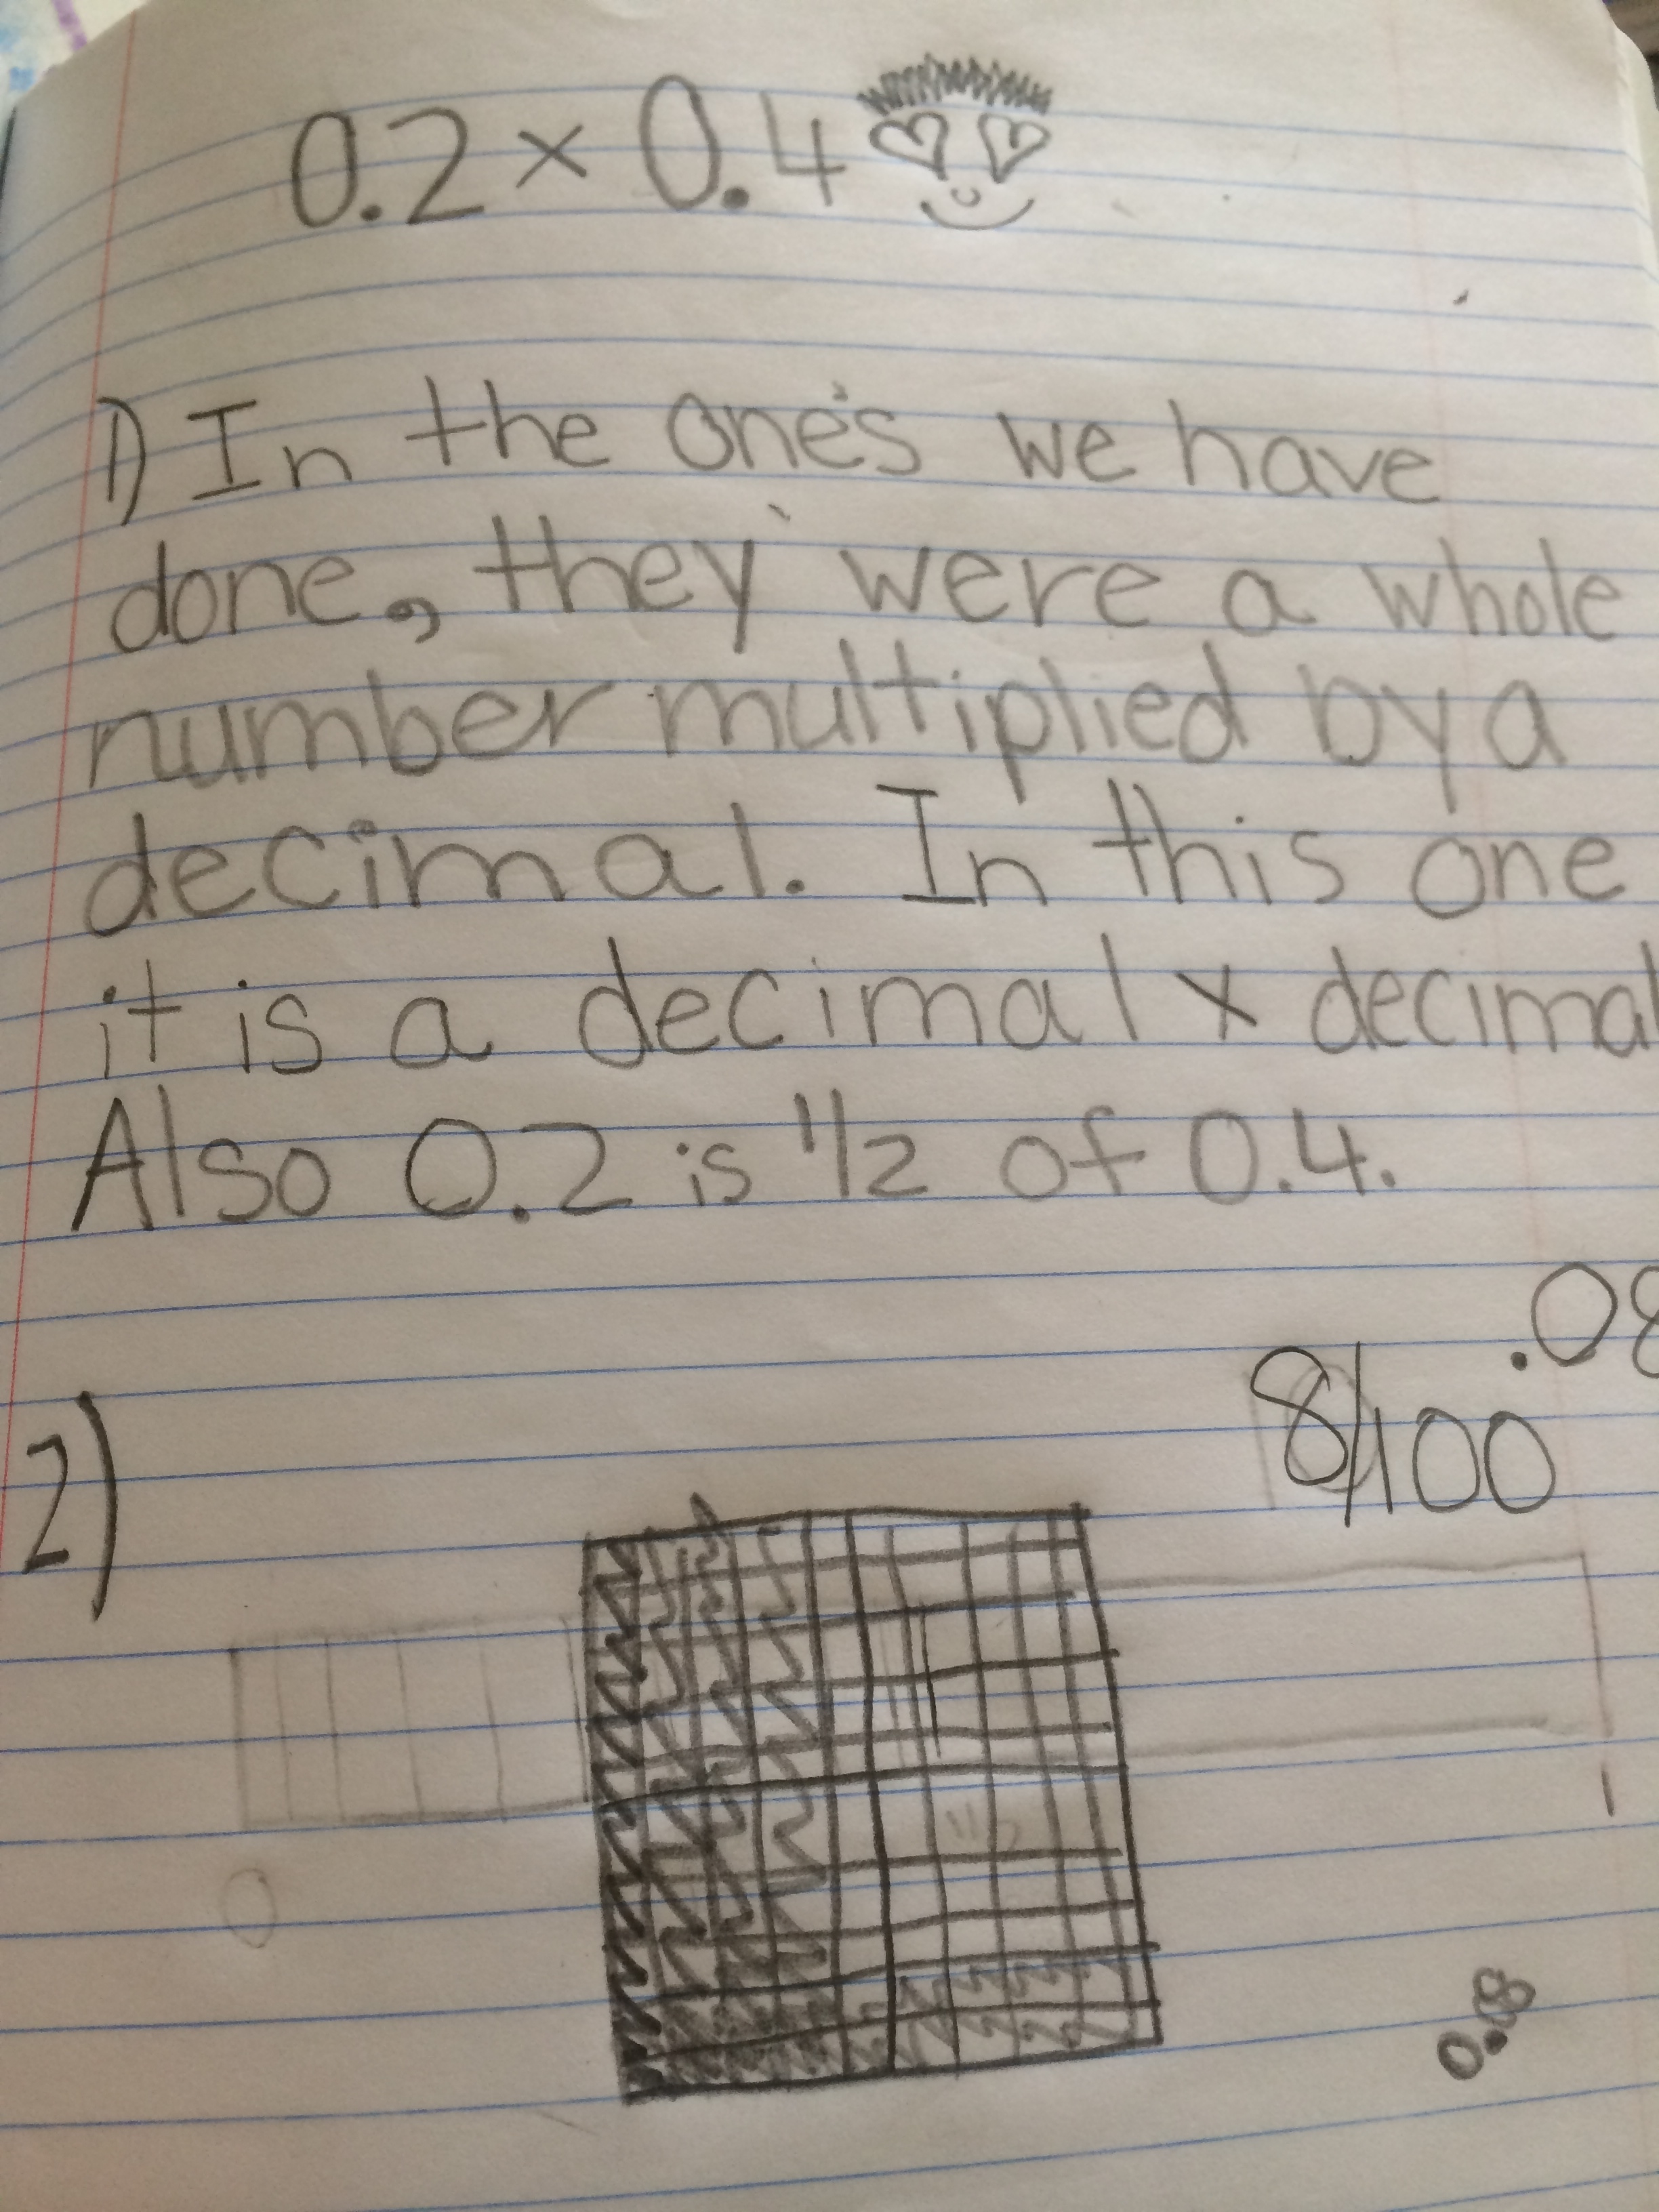 0.2 × 0.4
1) In the one's we have
done, they were a whole
number multiplied by a
decimal. In this one
it is a decimal x decimal
Also 0.2 is 1/2 of 0.4.
.08
2)
8/100
0.8